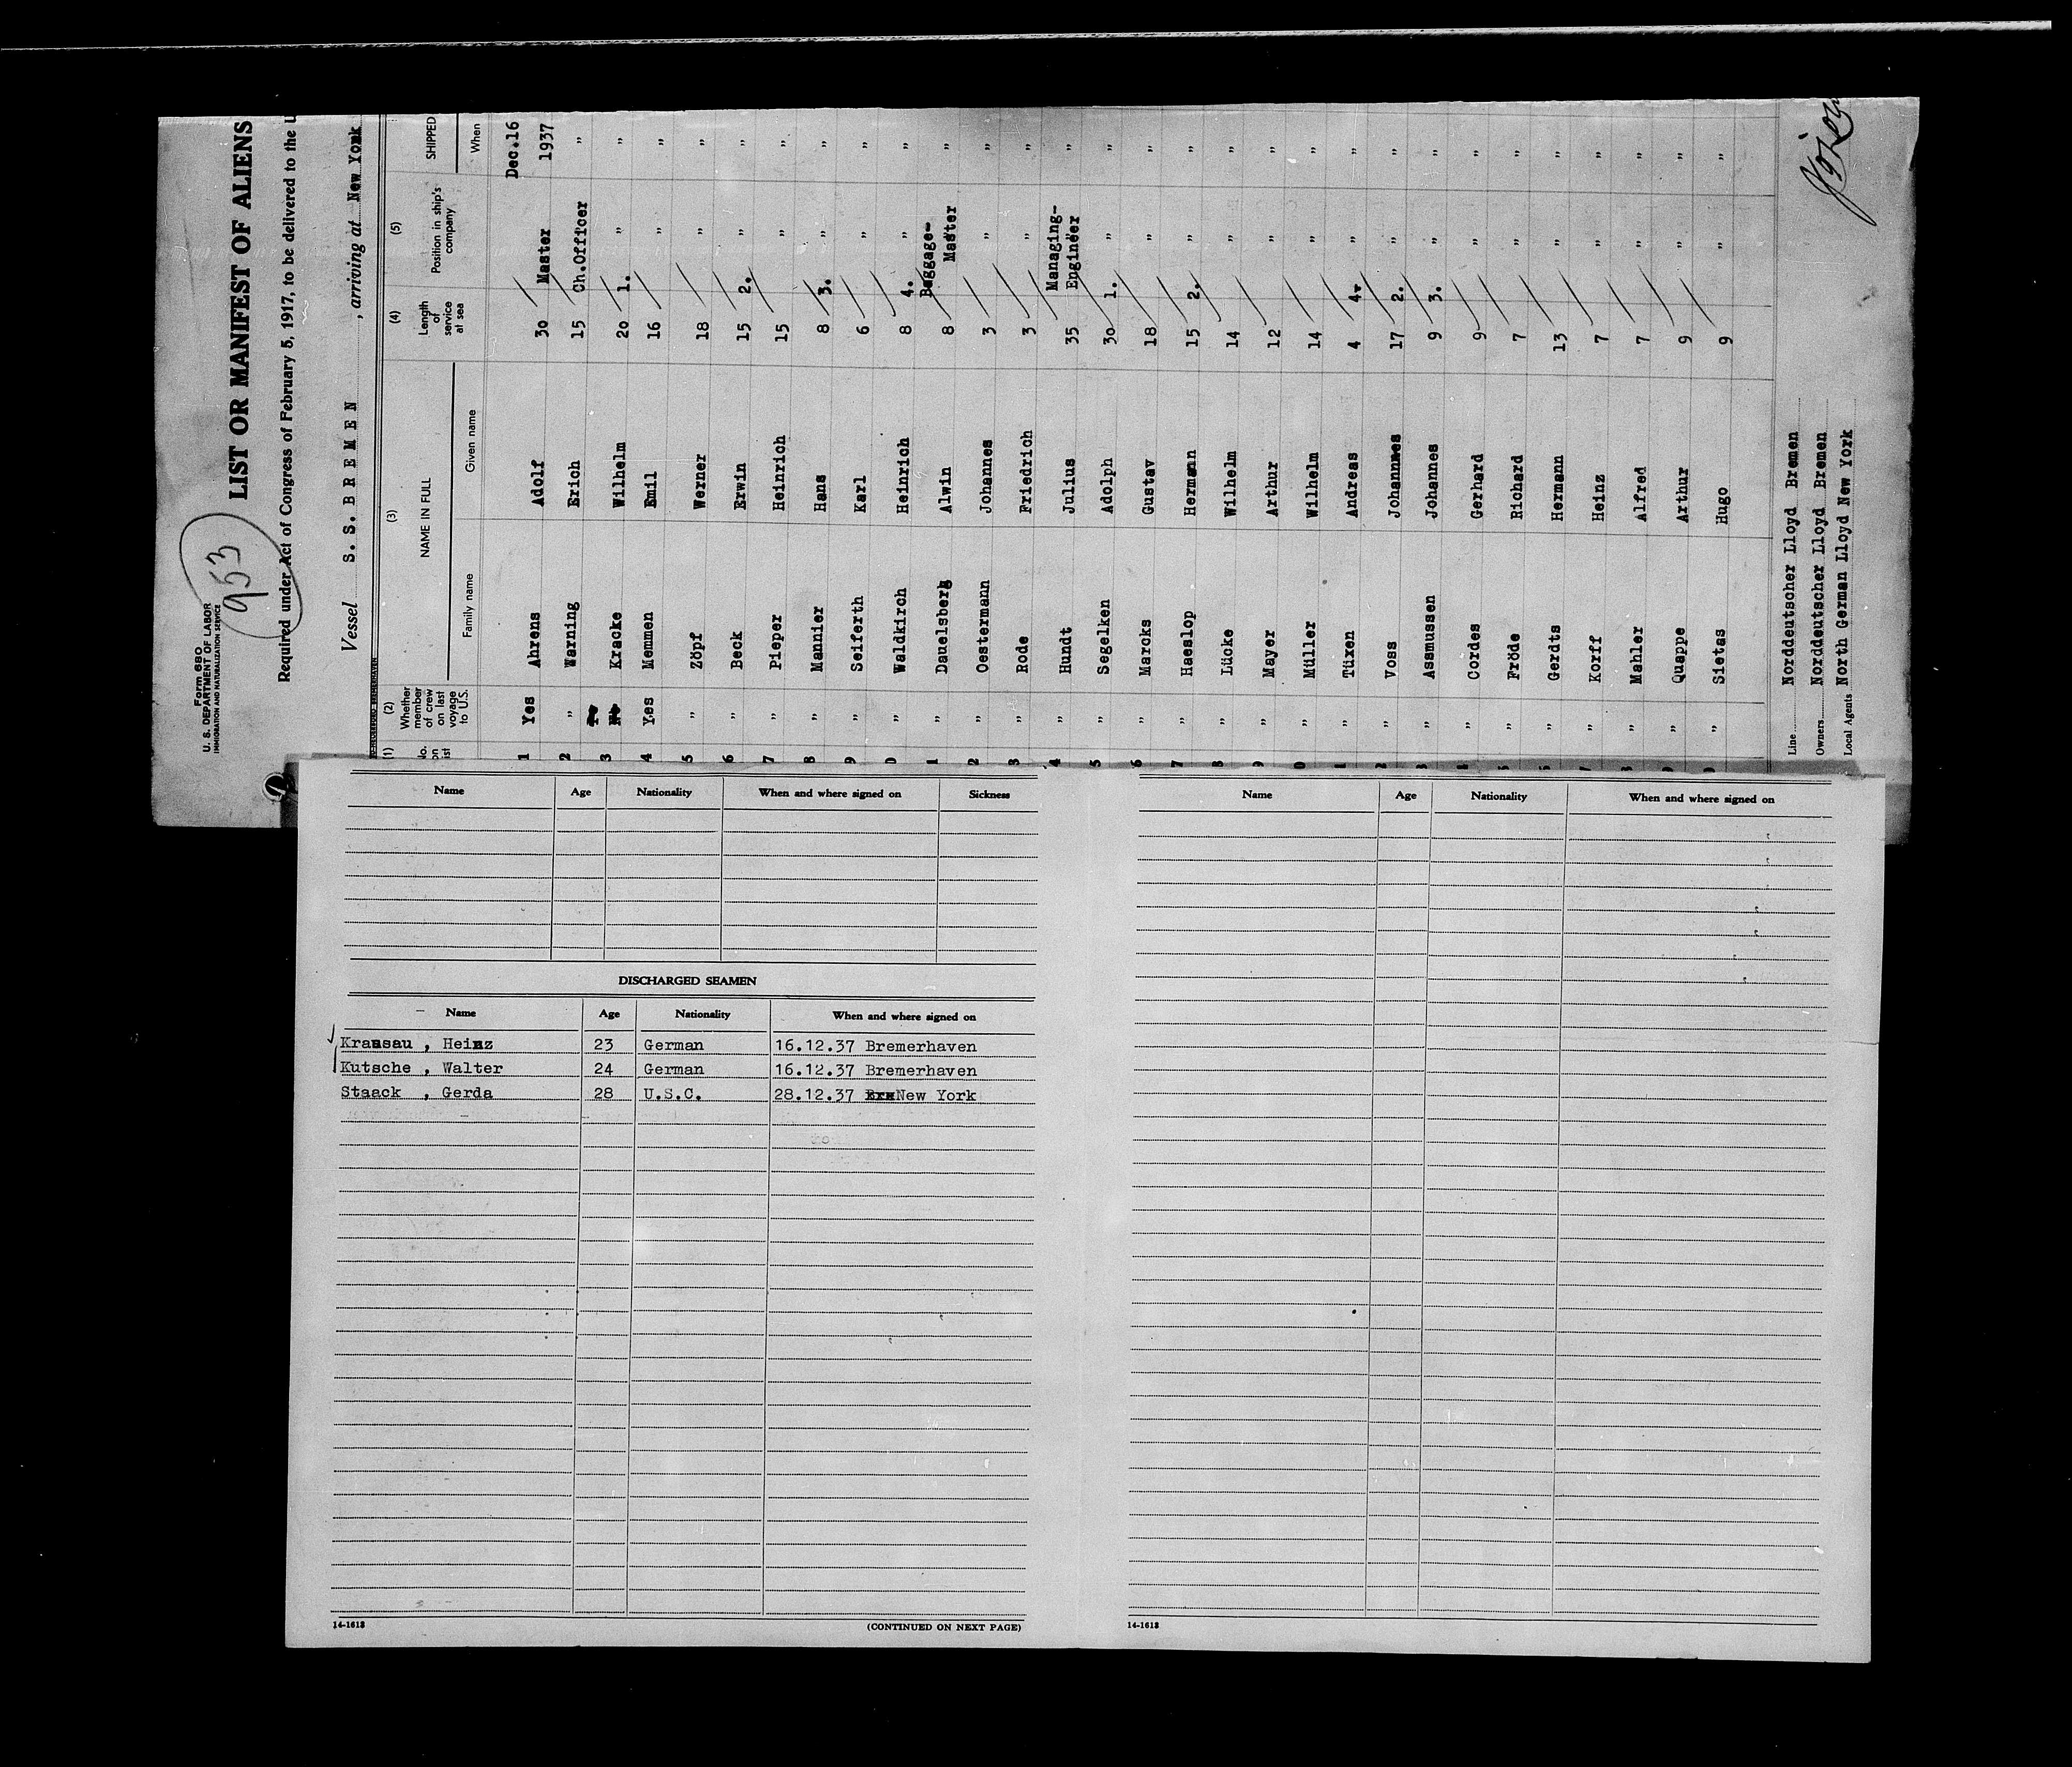 Form 680
U. S. DEPARTMENT OF LABOR
IMMIGRATION AND NATURALIZATION SERVICE
953
LIST OR MANIFEST OF ALIENS
Required under Act of Congress of February 5, 1917, to be delivered to the U
Vessel S. S. B R E M E N , arriving at New York
(1) (2) (3) (4) (5)
No. on list Whether member of crew on last voyage to U.S. NAME IN FULL Length of service at sea Position in ship's company SHIPPED
Family name Given name When
Dec.16
1 Yes Ahrens Adolf 30 Master 1937
2 " Warning Erich 15 Ch.Officer "
3 Kracke Wilhelm 20 1. " "
4 Yes Memmen Emil 16 " "
5 " Zöpf Werner 18 " "
6 " Beck Erwin 15 2. " "
7 " Pieper Heinrich 15 " "
8 " Mannier Hans 8 3. " "
9 " Seiferth Karl 6 " "
0 " Waldkirch Heinrich 8 4. " "
1 " Dauelsberg Alwin 8 Baggage-Master "
2 " Oestermann Johannes 3 " "
3 " Rode Friedrich 3 " "
4 " Hundt Julius 35 Managing-Engineer "
5 " Segelken Adolph 30 1. " "
6 " Marcks Gustav 18 " "
7 " Haeslop Hermann 15 2. " "
8 " Lücke Wilhelm 14 " "
9 " Mayer Arthur 12 " "
0 " Müller Wilhelm 14 " "
1 " Tüxen Andreas 4 4. " "
2 " Voss Johannes 17 2. " "
3 " Assmussen Johannes 9 3. " "
4 " Cordes Gerhard 9 " "
5 " Fröde Richard 7 " "
6 " Gerdts Hermann 13 " "
7 " Korff Heinz 7 " "
8 " Mahler Alfred 7 " "
9 " Quappe Arthur 9 " "
0 " Sietas Hugo 9 " "
Line Norddeutscher Lloyd Bremen
Owners Norddeutscher Lloyd Bremen
Local Agents North German Lloyd New York
Name Age Nationality When and where signed on Sickness
DISCHARGED SEAMEN
Name Age Nationality When and where signed on
Kransau , Heinz 23 German 16.12.37 Bremerhaven
Kutsche , Walter 24 German 16.12.37 Bremerhaven
Staack , Gerda 28 U.S.C. 28.12.37 New York
14-1613 (CONTINUED ON NEXT PAGE)
Name Age Nationality When and where signed on
14-1613